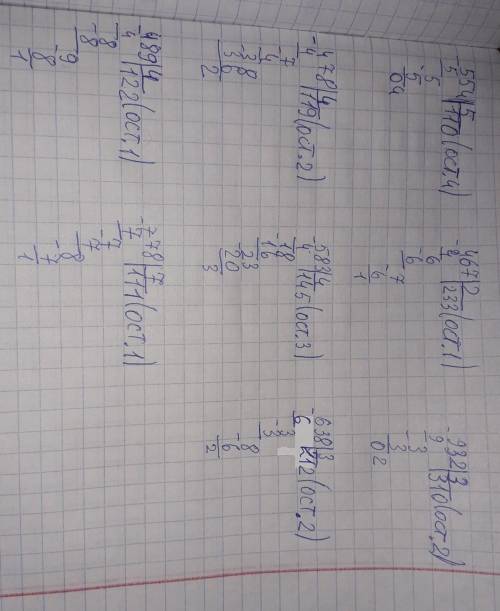 -554|5
5 |110(ост.4)
-5
5
04
-467|2
4 |233(ост.1)
-6
6
-7
6
1
-932|3
9 |310(ост.2)
-3
3
02
-478|4
4 |119(ост.2)
-7
4
-38
36
2
-583|4
4 |145(ост.3)
-18
16
-23
20
3
-638|3
6 |212(ост.2)
-3
3
-8
6
2
-489|4
4 |122(ост.1)
-8
8
-9
8
1
-778|7
7 |111(ост.1)
-7
7
-8
7
1